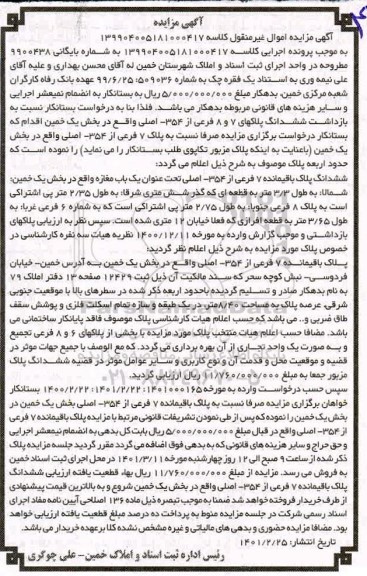 آگهی مزایده
آگهی مزایده اموال غیرمنقول کلاسه ۱۳۹۹۰۴۰۰۵۱۸۱۰۰۰۴۱۷
به موجب پرونده اجرایی کلاسه ۱۳۹۹۰۴۰۰۵۱۸۱۰۰۰۴۱۷ به شماره بایگانی ۹۹۰۰۴۳۸
مطروحه در واحد اجرای ثبت اسناد و املاک شهرستان خمین له آقای محسن بهداری و علیه آقای
علی نیمه وری به استناد یک فقره چک به شماره ۵۰۹۰۳۶-۹۹/۶/۲۵ عهده بانک رفاه کارگران
شعبه مرکزی خمین، بدهکار مبلغ ۵/۰۰۰/۰۰۰/۰۰۰ ریال به بستانکار به انضمام نیمعشر اجرایی
و سایر هزینه های قانونی مربوطه بدهکار می باشد. فلذا بنا به درخواست بستانکار نسبت به
بازداشت ششدانگ پلاکهای ۷ و ۸ فرعی از ۳۵۴- اصلی واقع در بخش یک خمین اقدام که
بستانکار درخواست برگزاری مزایده صرفا نسبت به پلاک ۷ فرعی از ۳۵۴- اصلی واقع در بخش
یک خمین (باعنایت به اینکه پلاک مزبور تکاپوی طلب بستانکار را می نماید) را نموده است که
حدود اربعه پلاک موصوف به شرح ذیل اعلام می گردد:
ششدانگ پلاک باقیمانده ۷ فرعی از ۳۵۴- اصلی تحت عنوان یک باب مغازه واقع در بخش یک خمین:
شمالا: به طول ۳/۳ متر به قطعه ای که گذر شش متری شرقا: به طول ۲/۳۵ متر پی اشتراکی
است به پلاک ۸ فرعی جنوبا: به طول ۲/۷۵ متر پی اشتراکی است که به شماره ۶ فرعی غربا: به
طول ۳/۶۵ متر به قطعه افرازی که فعلا خیابان ۱۲ متری شده است. سپس نظر به ارزیابی پلاکهای
بازداشتی و موجب گزارش وارده به مورخه ۱۴۰۰/۱۲/۱۱ نظریه هیات سه نفره کارشناسی در
خصوص پلاک مورد مزایده به شرح ذیل اعلام نظر گردید.
پلاک باقیمانده ۷ فرعی از ۳۵۴- اصلی واقع در بخش یک خمین به آدرس خمین- خیابان
فردوسی- نبش کوچه سحر که سند مالکیت آن ذیل ثبت ۱۲۴۲۹ صفحه ۱۳ دفتر املاک ۷۹
به نام بدهکار صادر و تسلیم گردیده باحدود اربعه ذکر شده در سطرهای بالا با موقعیت جنوبی
شرقی، عرصه پلاک به مساحت ۸/۴۰ متر، در یک طبقه و مغازه تمام اسکلت فلزی و پوشش سقف
طاق ضربی و.. می باشد که حسب اعلام هیات کارشناسی پلاک موصوف فاقد پایانکار ساختمانی می
باشد. مضافا حسب اعلام هیات منتخب پلاک مورد مزایده با بخشی از پلاکهای ۶ و ۸ فرعی تجمیع
و به صورت یک واحد تجاری از آن بهره برداری می گردد. که مع الوصف با جمیع جهات موثر در
قضیه و موقعیت محل و قدمت آن و نوع کاربری و سایر عوامل موثر در قضیه ششدانگ پلاک
مزبور جمعا به مبلغ ۱۱/۷۶۰/۰۰۰/۰۰۰ ریال ارزیابی گردید.
سپس حسب درخواست وارده به مورخه ۱۴۰۱۰۰۰۱۶۵-۱۴۰۱/۲/۲۲ بستانکار
خواهان برگزاری مزایده صرفا نسبت به پلاک باقیمانده ۷ فرعی از ۳۵۴- اصلی بخش یک خمین در
بخش یک خمین را نموده که پس از طی نمودن تشریفات قانونی مرتبط با مزایده پلاک باقیمانده ۷ فرعی
از ۳۵۴- اصلی واقع در قبال مبلغ ۵/۰۰۰/۰۰۰/۰۰۰ ریال بابت کل بدهی به انضمام نیمعشر اجرایی
و حق حراج و سایر هزینه های قانونی که به بدهی فوق اضافه می گردد مقرر گردید جلسه مزایده پلاک
ذکر شده از ساعت ۹ صبح الی ۱۲ روز چهارشنبه مورخه ۱۴۰۱/۳/۱۱ در محل اجرای ثبت اسناد خمین
به فروش می رسد. مزایده از مبلغ ۱۱/۷۶۰/۰۰۰/۰۰۰ ریال بهاء قطعیت یافته ارزیابی ششدانگ
پلاک باقیمانده ۷ فرعی از ۳۵۴- اصلی واقع در بخش یک خمین شروع و به بالاترین قیمت پیشنهادی
از طرف خریدار فروخته خواهد شد ضمنا به موجب تبصره ذیل ماده ۱۳۶ اصلاحی آیین نامه مفاد اجرای
اسناد رسمی شرکت در جلسه مزایده منوط به پرداخت ده درصد مبلغ قطعیت یافته ارزیابی خواهد
بود. مضافا مزایده حضوری و بدهی های مالیاتی و غیره مشخص نشده کلا برعهده خریدار می باشد.
تاریخ انتشار: ۱۴۰۱/۲/۲۵
رئیس اداره ثبت اسناد و املاک خمین- علی چوگری